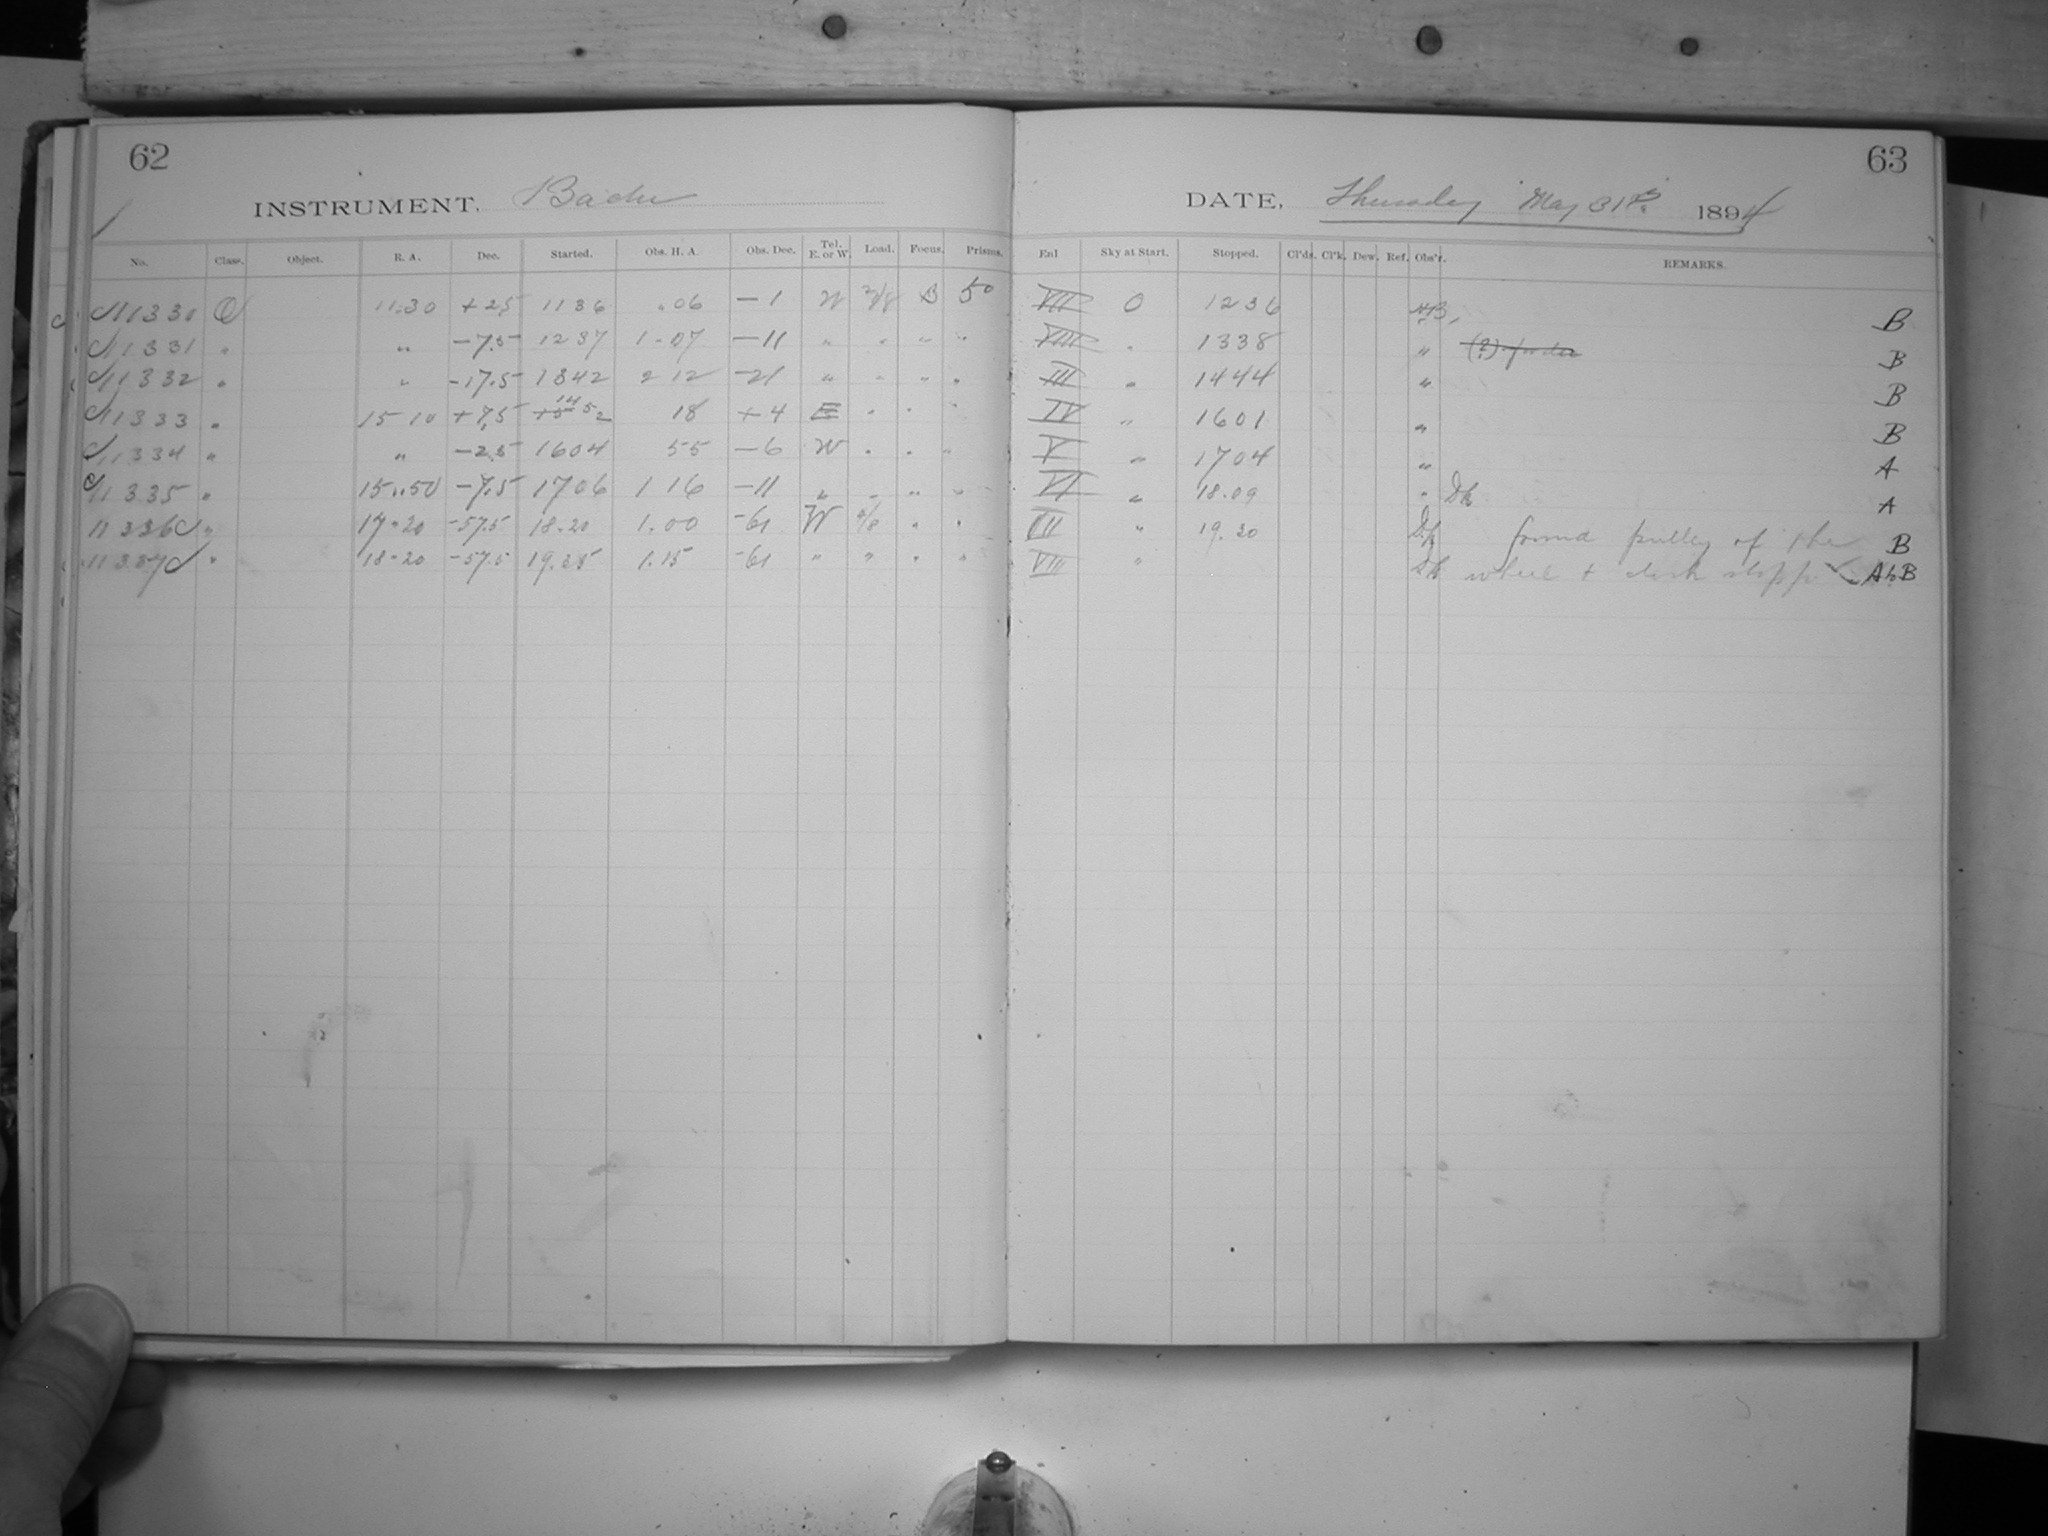 62
INSTRUMENT. Bache
DATE, Thursday May 31st. 1894
63
No. Class. Object. R. A. Dec. Started. Obs. H. A. Obs. Dec. Tel. E. or W. Load. Focus. Prisms. Enl Sky at Start. Stopped. Cl'ds. Cl'k. Dew. Ref. Obs'r. REMARKS.
11330 11.30 +2.5 1136 .06 —1 W B 5° VII 0 1236 B
11331 " " —7.5 1237 1.07 —11 " " " " VIII " 1338 " (?) B
11332 " " —17.5 1342 2 12 —21 " " " " III " 1444 " B
11333 " 15 10 +7.5 14 52 18 +4 E " " " IV " 1601 " B
11334 " " —2.5 1604 55 —6 W " " " V " 1704 " A
11335 " 15..50 —7.5 1706 1 16 —11 " " " " VI " 18.09 " Dk A
11336 " 17-20 -57.5 18.20 1.00 -61 W " " VII " 19.20 Dk found pulley of the B
11337 " 18-20 -57.5 1.15 -61 " " " " VIII " Dk wheel + clock A to B